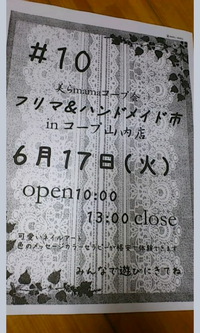 #10
美らmamaコープ会
フリマ&ハンドメイド市
inコープ山内店
6月17日(火)
open10:00
13:00close
可愛いネイルアート
色のメッセージカラーセラピーが格安で体験できます
みんなで遊びにきてね